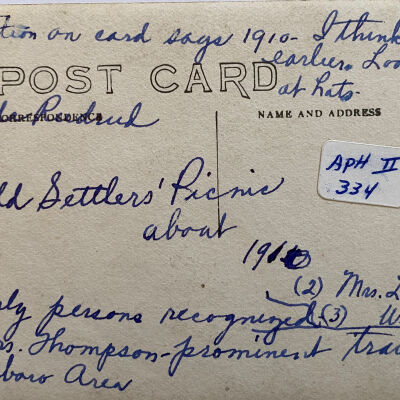 tion on card says 1910- I think
earlier. Loo
at hats.
POST CARD
CORRESPONDENCE
NAME AND ADDRESS
APH II
334
ld Settlers' Picnic
about
1910
(2) Mrs. L
ly persons recognized. (3) W
s. Thompson-prominent tra
boro Area